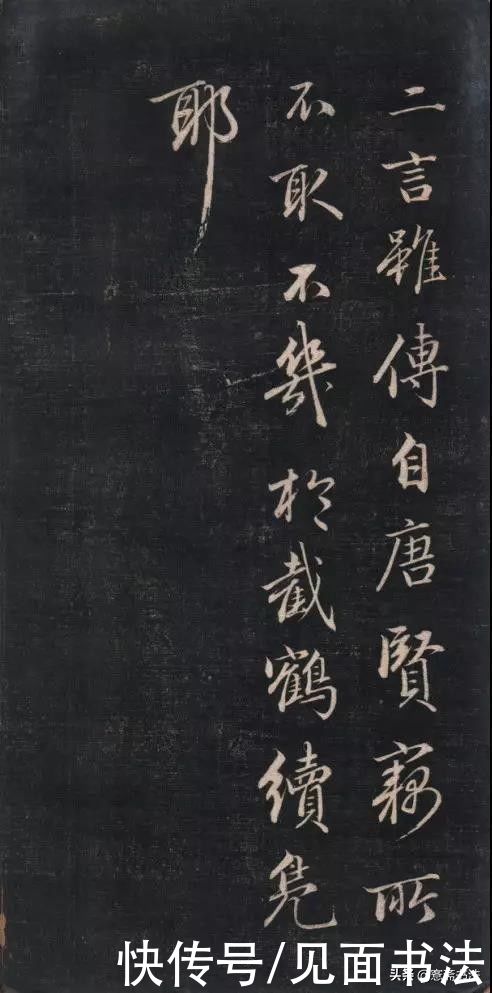 二言雖傳自唐賢竊所
不取不幾於截鶴續鳧
耶
快传号/见面书法
头条